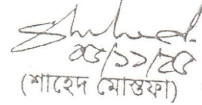 ২৫/১১/২৫
(শাহেদ মোস্তফা)